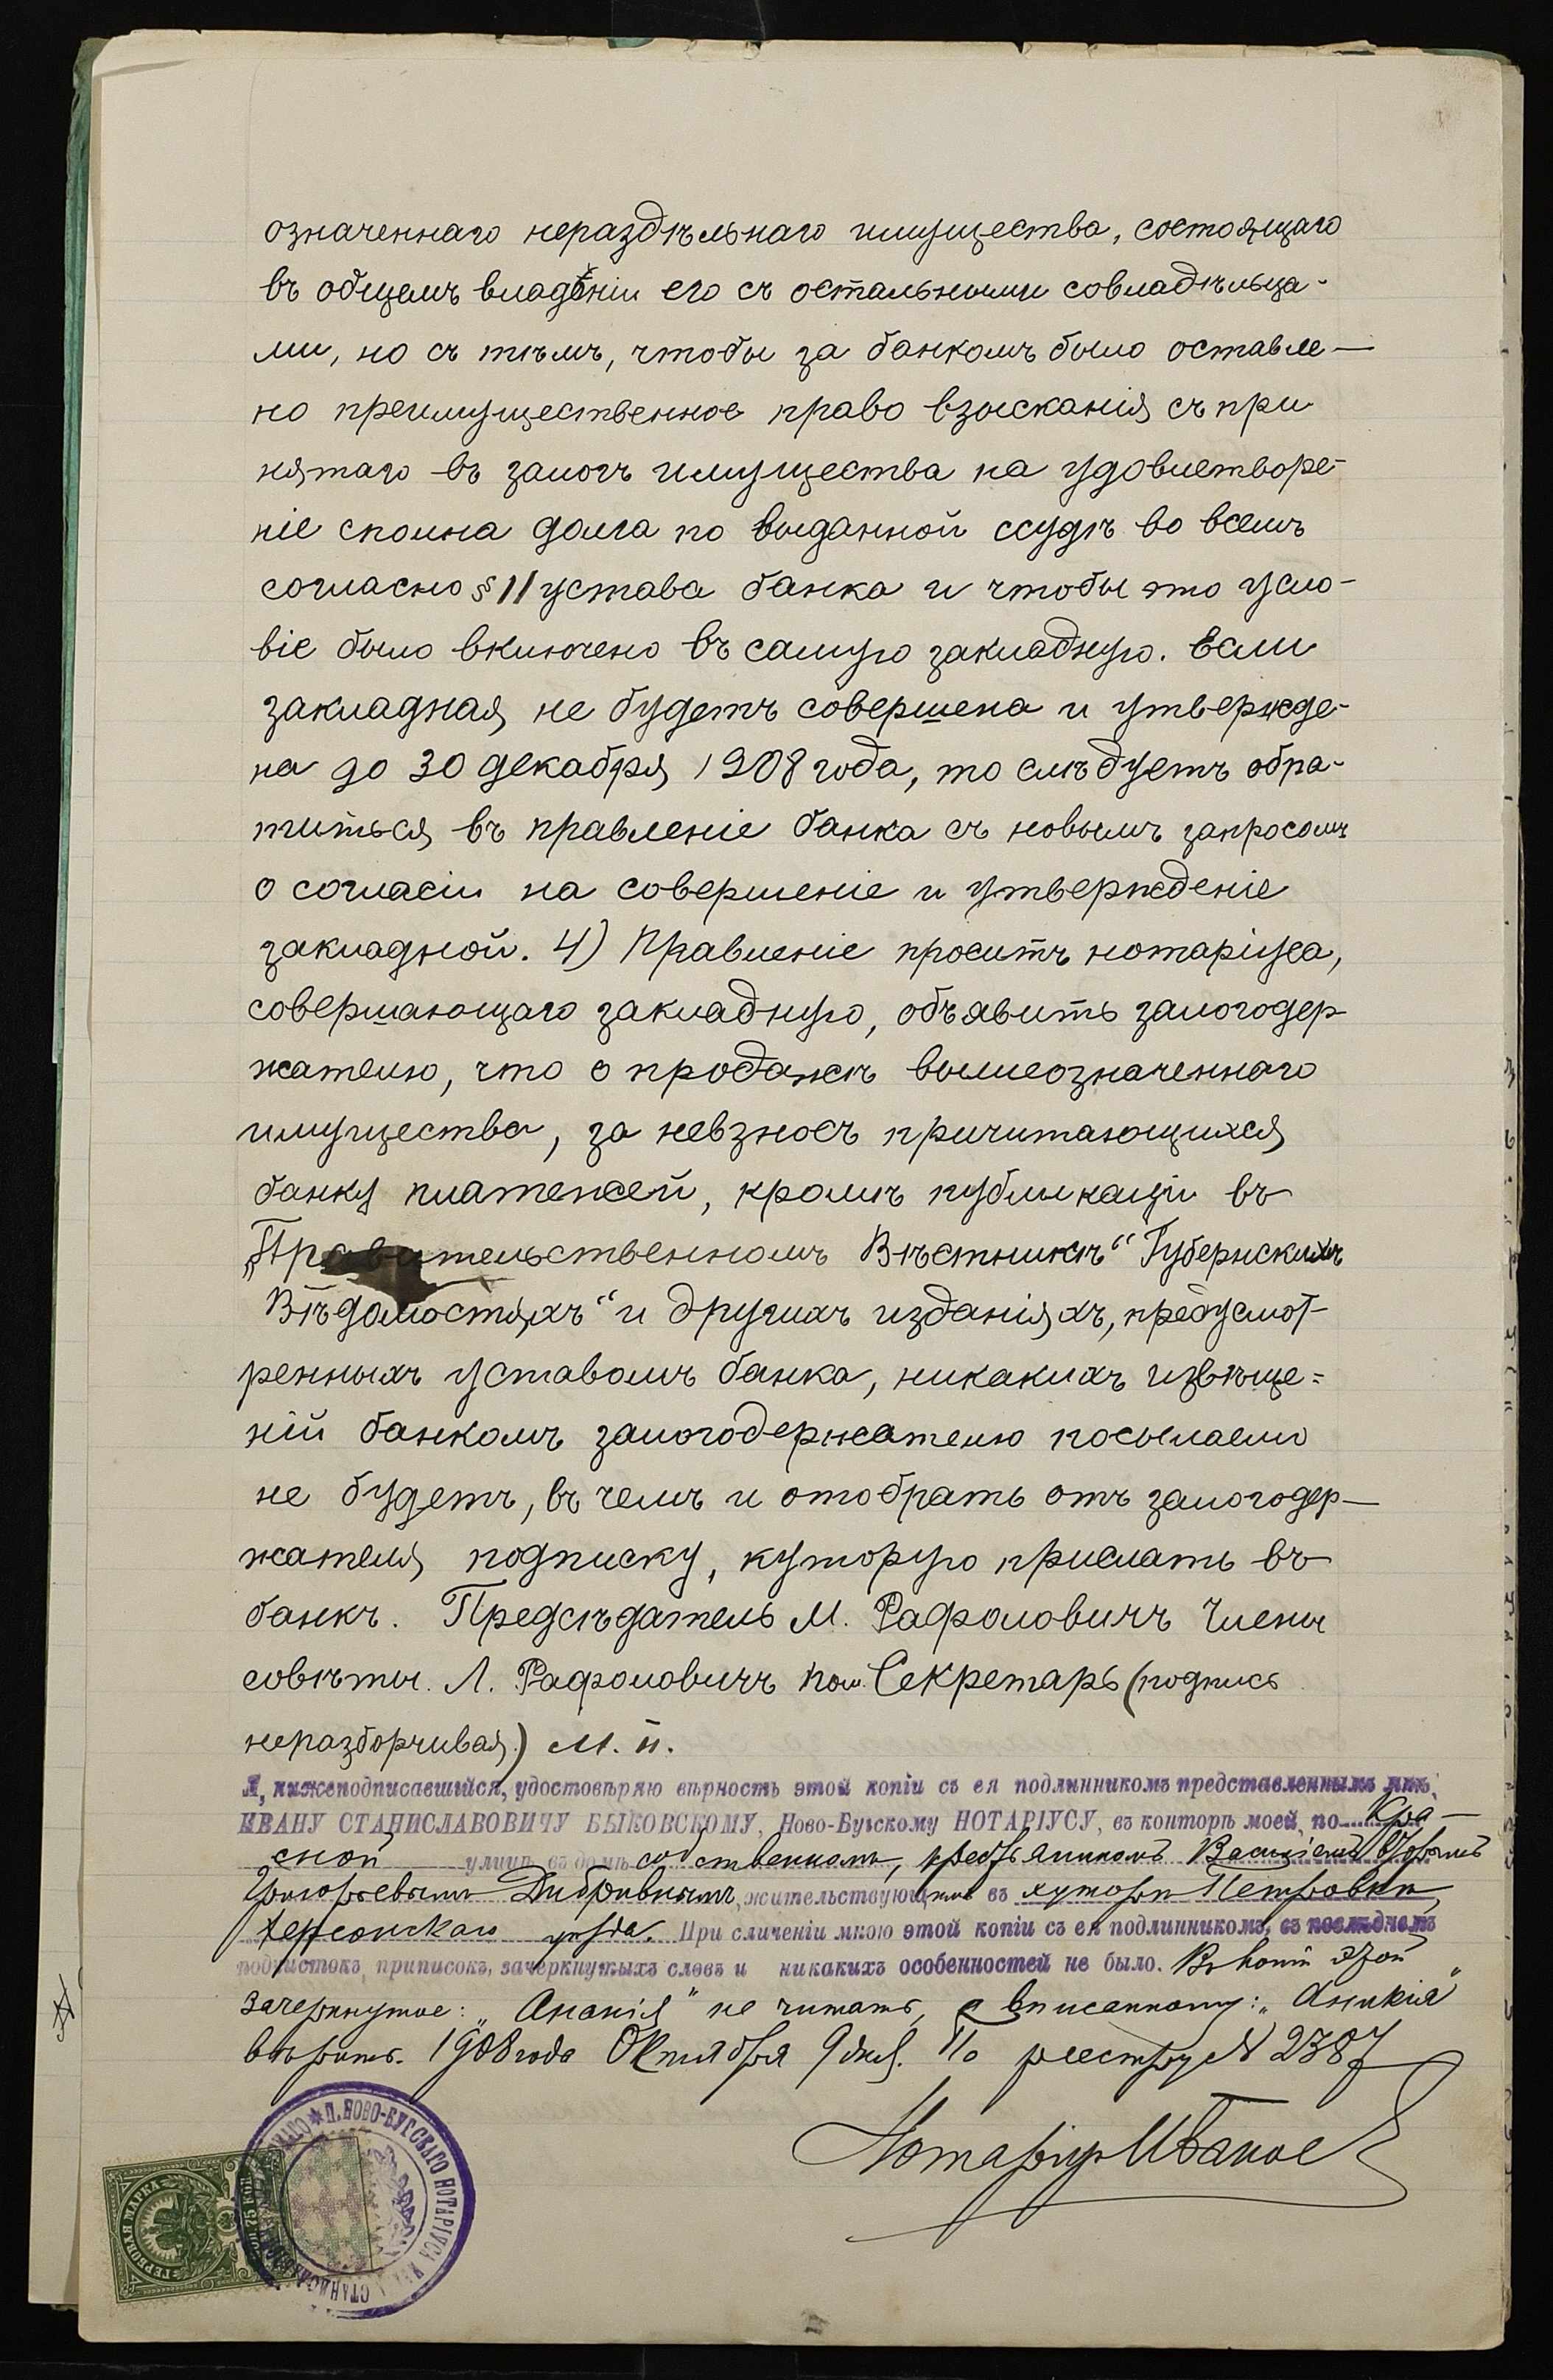 означеннаго нераздѣльнаго имущества, состоящаго
въ общемъ владѣніи его съ остальными совладѣльца-
ми, но съ тѣмъ, чтобы за банкомъ было оставле-
но преимущественное право взысканія съ при
нятаго въ залогъ имущества на удовлетворе-
ніе сполна долга по выданной ссудѣ во всемъ
согласно § 11 устава банка и чтобы это усло-
віе было включено въ самую закладную. Если
закладная не будетъ совершена и утвержде-
на до 30 декабря 1908 года, то слѣдуетъ обра-
титься въ правленіе банка съ новымъ запросомъ
о согласіи на совершеніе и утвержденіе
закладной. 4) Правленіе проситъ нотаріуса,
совершающаго закладную, объявить залогодер
жателю, что о продажѣ вышеозначеннаго
имущества, за невзносъ причитающихся
банку платежей, кромѣ публикаціи въ
„Правительственномъ Вѣстникѣ“ Губернскихъ
Вѣдомостяхъ“ и другихъ изданіяхъ, предусмот-
ренныхъ уставомъ банка, никакихъ извѣще=
ній банкомъ залогодержателю посылаемо
не будетъ, въ чемъ и отобрать отъ залогодер-
жателя подписку, куторую прислать въ
банкъ. Предсѣдатель М. Рафаловичъ Члены
совѣты. Л. Рафаловичъ Пом. Секретарь (подпись
неразборчивая) М. П.
Я, нижеподписавшійся, удостовѣряю вѣрность этой копіи съ ея подлинникомъ представленнымъ мнѣ,
ИВАНУ СТАНИСЛАВОВИЧУ БЫКОВСКОМУ, Ново-Бугскому НОТАРІУСУ, въ конторѣ моей, по Кра-
сной улицѣ, въ домѣ собственномъ, крестьяниномъ Василіемъ
Григорьевымъ жительствующимъ въ хуторѣ Петровкѣ,
Херсонскаго уѣзда. При сличеніи мною этой копіи съ ея подлинникомъ, въ послѣднемъ
подчистокъ, приписокъ, зачеркнутыхъ словъ и никакихъ особенностей не было. Въ копіи этой
зачеркнутое: „Ананія“ не читать, а вписанному: „Аникія“
вѣрить. 1908 года Октября 9 дня. По реестру № 2387
Нотаріусъ
★ П. НОВО-БУГСКАГО НОТАРІУСА
ГЕРБОВАЯ МАРКА
75 КОП.